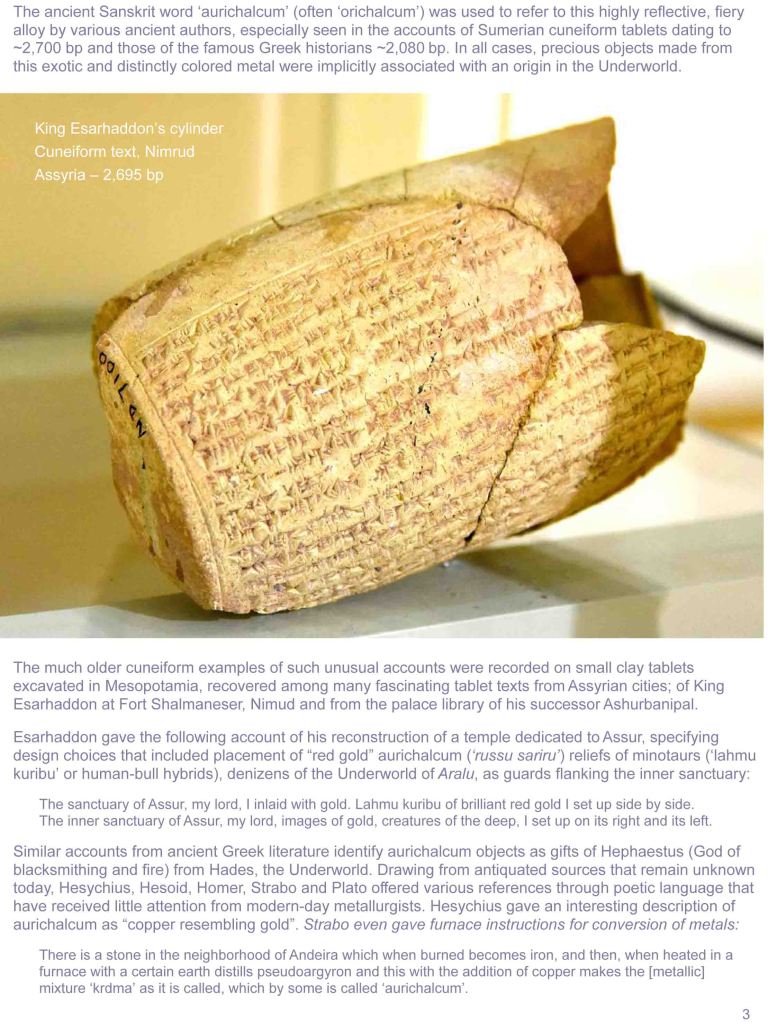 The ancient Sanskrit word ‘aurichalcum’ (often ‘orichalcum’) was used to refer to this highly reflective, fiery
alloy by various ancient authors, especially seen in the accounts of Sumerian cuneiform tablets dating to
~2,700 bp and those of the famous Greek historians ~2,080 bp. In all cases, precious objects made from
this exotic and distinctly colored metal were implicitly associated with an origin in the Underworld.
King Esarhaddon’s cylinder
Cuneiform text, Nimrud
Assyria – 2,695 bp
The much older cuneiform examples of such unusual accounts were recorded on small clay tablets
excavated in Mesopotamia, recovered among many fascinating tablet texts from Assyrian cities; of King
Esarhaddon at Fort Shalmaneser, Nimud and from the palace library of his successor Ashurbanipal.
Esarhaddon gave the following account of his reconstruction of a temple dedicated to Assur, specifying
design choices that included placement of “red gold” aurichalcum (‘russu sariru’) reliefs of minotaurs (‘lahmu
kuribu’ or human-bull hybrids), denizens of the Underworld of Aralu, as guards flanking the inner sanctuary:
The sanctuary of Assur, my lord, I inlaid with gold. Lahmu kuribu of brilliant red gold I set up side by side.
The inner sanctuary of Assur, my lord, images of gold, creatures of the deep, I set up on its right and its left.
Similar accounts from ancient Greek literature identify aurichalcum objects as gifts of Hephaestus (God of
blacksmithing and fire) from Hades, the Underworld. Drawing from antiquated sources that remain unknown
today, Hesychius, Hesoid, Homer, Strabo and Plato offered various references through poetic language that
have received little attention from modern-day metallurgists. Hesychius gave an interesting description of
aurichalcum as “copper resembling gold”. Strabo even gave furnace instructions for conversion of metals:
There is a stone in the neighborhood of Andeira which when burned becomes iron, and then, when heated in a
furnace with a certain earth distills pseudoargyron and this with the addition of copper makes the [metallic]
mixture ‘krdma’ as it is called, which by some is called ‘aurichalcum’.
3